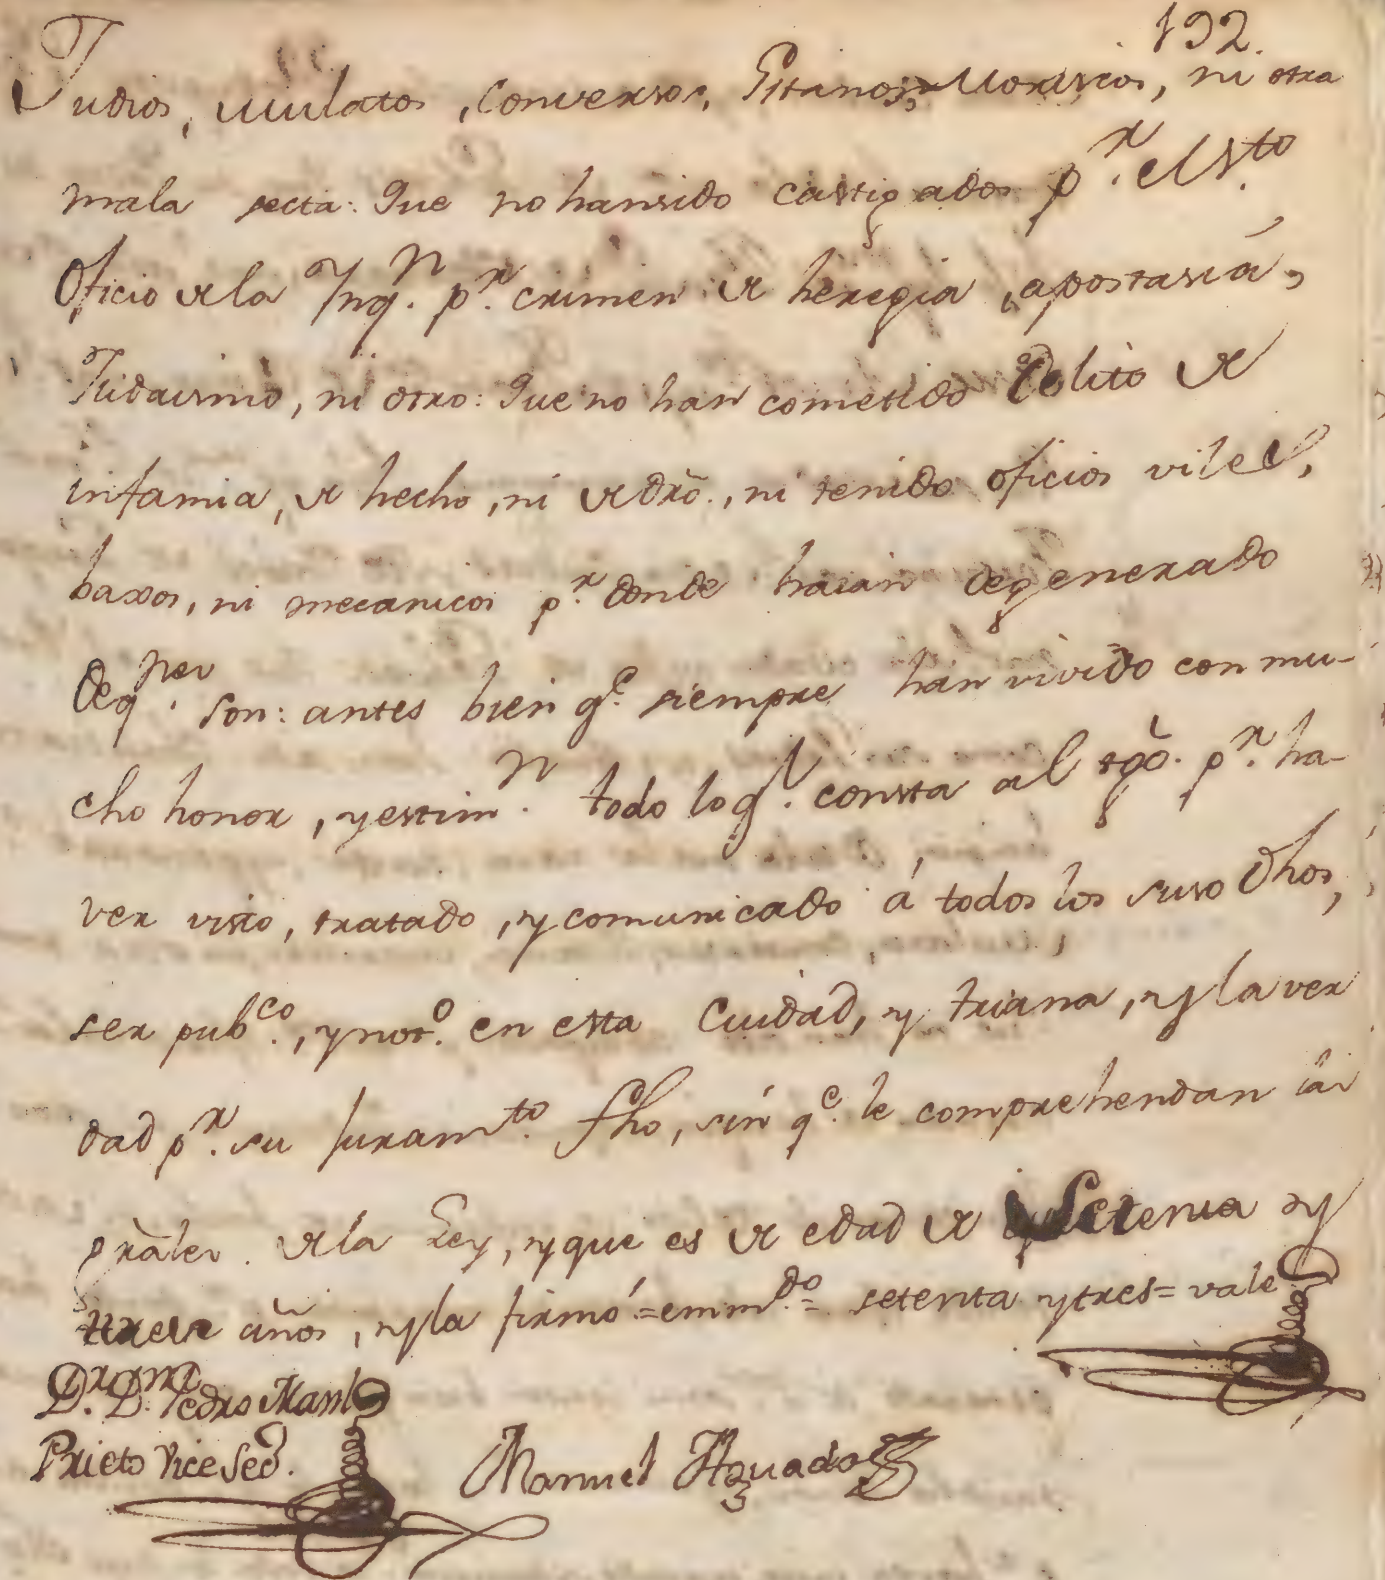 192.
Judios, Mulatos, Conversos, Gitanos, Moriscos, ni otra
mala secta: Que no han sido castigados pr. el Sto.
Oficio de la Ynqn. pr. crimen de heregia, apostasiá,
Judaismo, ni otro: Que no han cometido Delito de
infamia, de hecho, ni de dro., ni tenido oficios viles,
baxos, ni mecanicos pr. donde haian degenerado
de qnes. son: antes bien qe. siempre han vivido con mu-
cho honor, y estimn. todo lo ql. consta al tgo. pr. ha-
ver visto, tratado, y comunicado á todos los suso dhos,
ser pubco., y noto. en esta Ciudad, y triana, y la ver
dad pr. su Juramto. fho, sin qe. le comprehendan las
prales. de la Ley, y que es de edad de Setenta y
tres años, y la firmó =emmdo.= setenta y tres= vale
Dr. Dn. Pedro Manl
Prieto Vice Seco.
Manuel Aguado